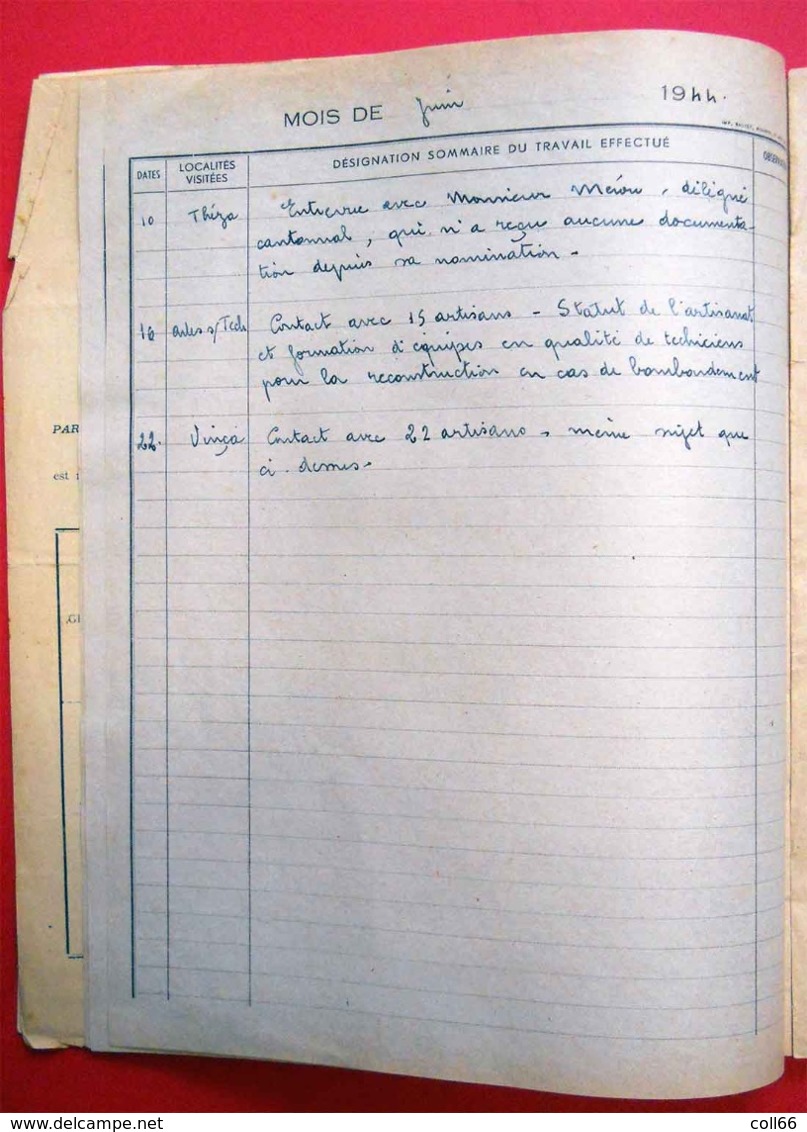 MOIS DE Juin 1944.
DATES LOCALITÉS VISITÉES DÉSIGNATION SOMMAIRE DU TRAVAIL EFFECTUÉ
10 Théza Entrevue avec Monsieur Méric, délégué
cantonnal, qui n'a reçu aucune documenta-
tion depuis sa nomination -
16 Arles s/Tech Contact avec 15 artisans - Statut de l'artisanat
et formation d'équipes en qualité de techiciens
pour la reconstruction en cas de bombardement
22. Vinça Contact avec 22 artisans, même sujet que
ci-dessus -
PAR
est
www.delcampe.net
coll66